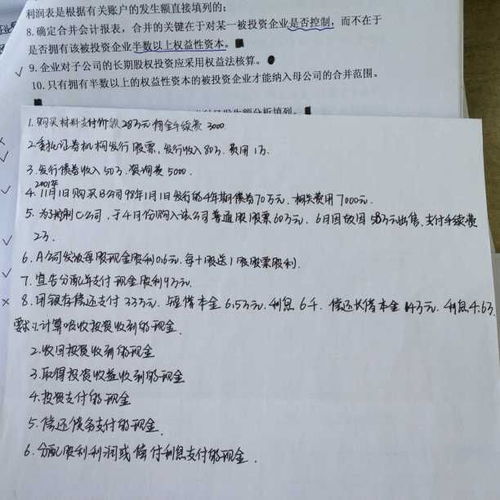 利润表是根据有关账户的发生额直接填列的;
8.确定合并会计报表，合并的关键在于对某一被投资企业是否控制，而不在于
是否拥有该被投资企业半数以上权益性资本。
9.企业对子公司的长期股权投资应采用权益法核算。
10.只有拥有半数以上的权益性资本的被投资企业才能纳入母公司的合并范围。
1.购买材料支付价款28万元 佣金手续费 3000
2.委托证券机构发行股票，发行收入80万. 费用1万.
3.发行债券收入50万. 咨询费 5000.
2001年
4. 11月1日购买B公司98年1月1日发行的4年期债券70万元. 相关费用7000元.
5.为了控制C公司，于4月份购入该公司普通股股票60万元. 6月因故因 50万元出售.支付手续费
2万.
6. A公司发放每股现金股利0.6元. 每十股送1股股票股利.
7.宣告分配并支付现金股利9万元.
8.用银行存偿还支付33万元. 短借本金6.5万元. 利息6千. 偿还长借本金 14万元. 利息4.6万.
要求:1.计算吸收投资收到的现金.
2.收回投资收到的现金
3.取得投资收益收到的现金
4.投资支付的现金
5.偿还债务支付的现金
6.分配股利利润或偿付利息支付的现金.